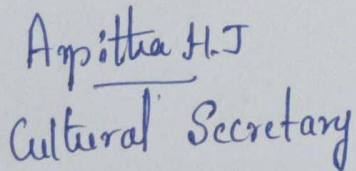 Arpitha H.J
Cultural Secretary